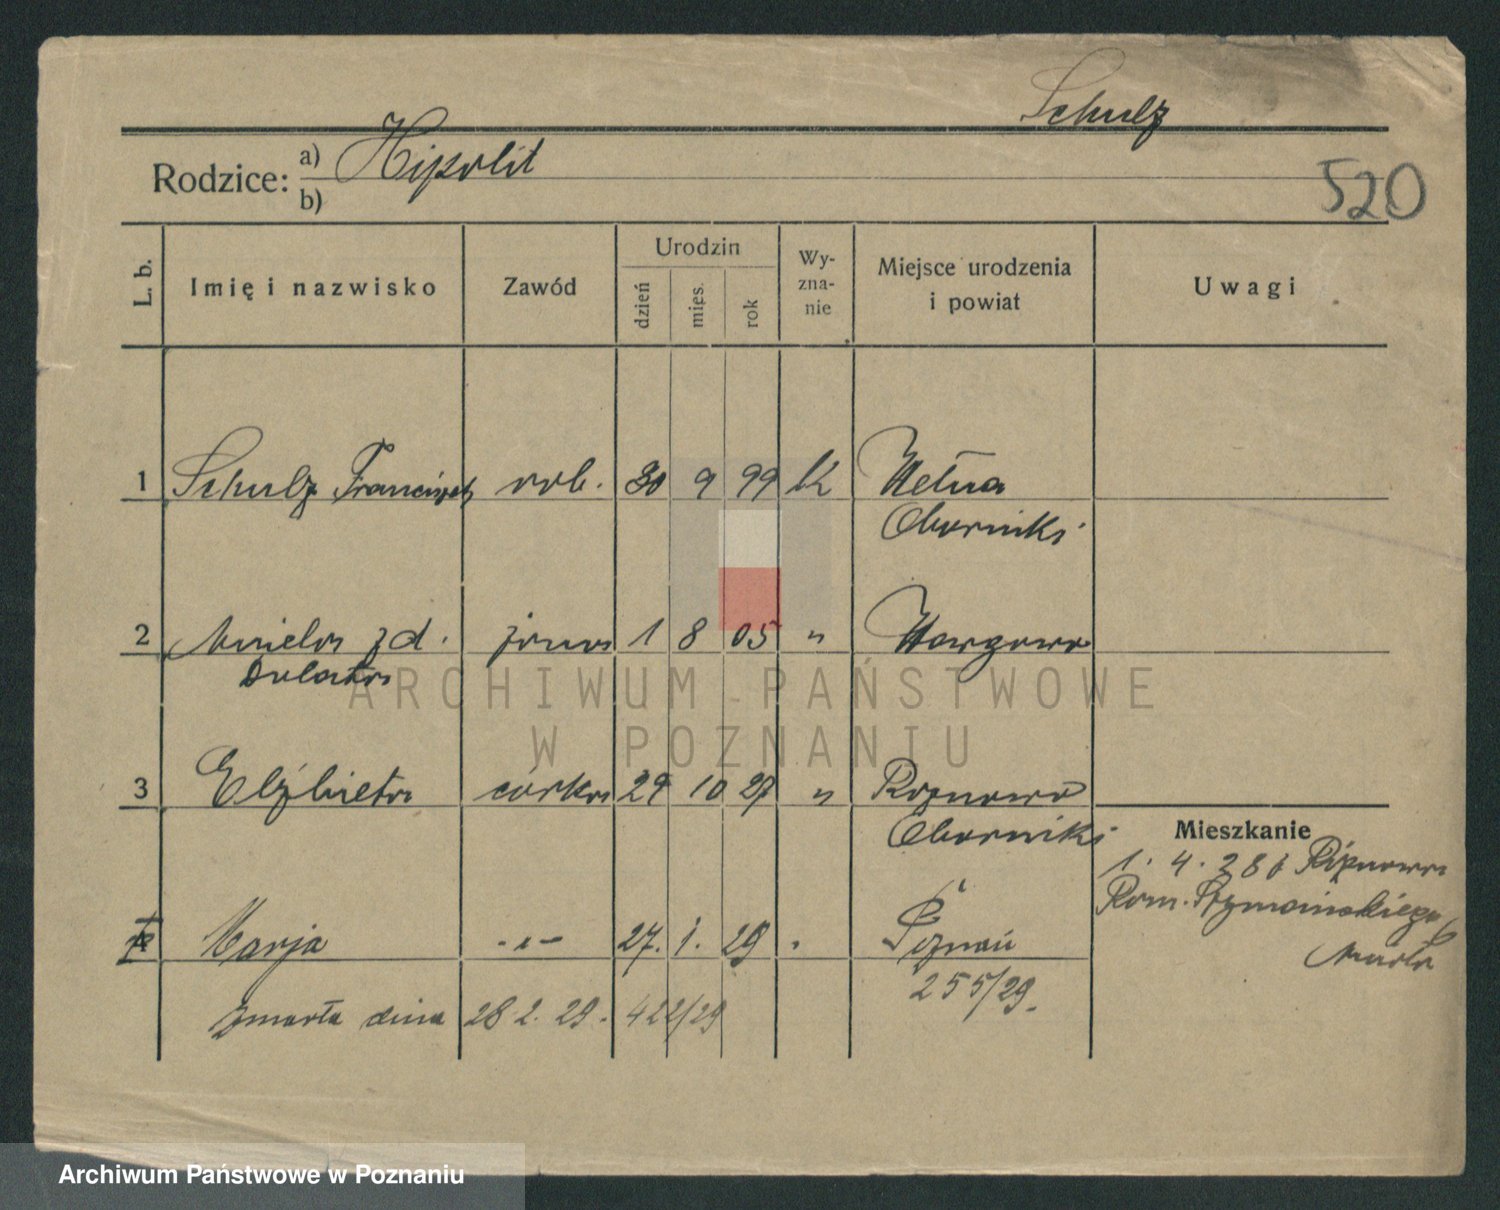 Schulz
Rodzice: a) Hipolit
b)
520
L. b.
Imię i nazwisko
Zawód
Urodzin
dzień
mięs.
rok
Wy-
zna-
nie
Miejsce urodzenia
i powiat
Uwagi
1 Schulz Franciszek rob. 30 9 99 K Wełna
Oborniki
2 zd. żona 1 8 05 " Wargowo
3 Elżbieta córka 29 10 27 " Rożnowo
Oborniki
Mieszkanie
1. 4. 28
4 Marja -"- 27. 1. 29 " Poznań
255/29.
zmarła dnia 28.2.29. 422/29
ARCHIWUM PAŃSTWOWE
W POZNANIU
Archiwum Państwowe w Poznaniu